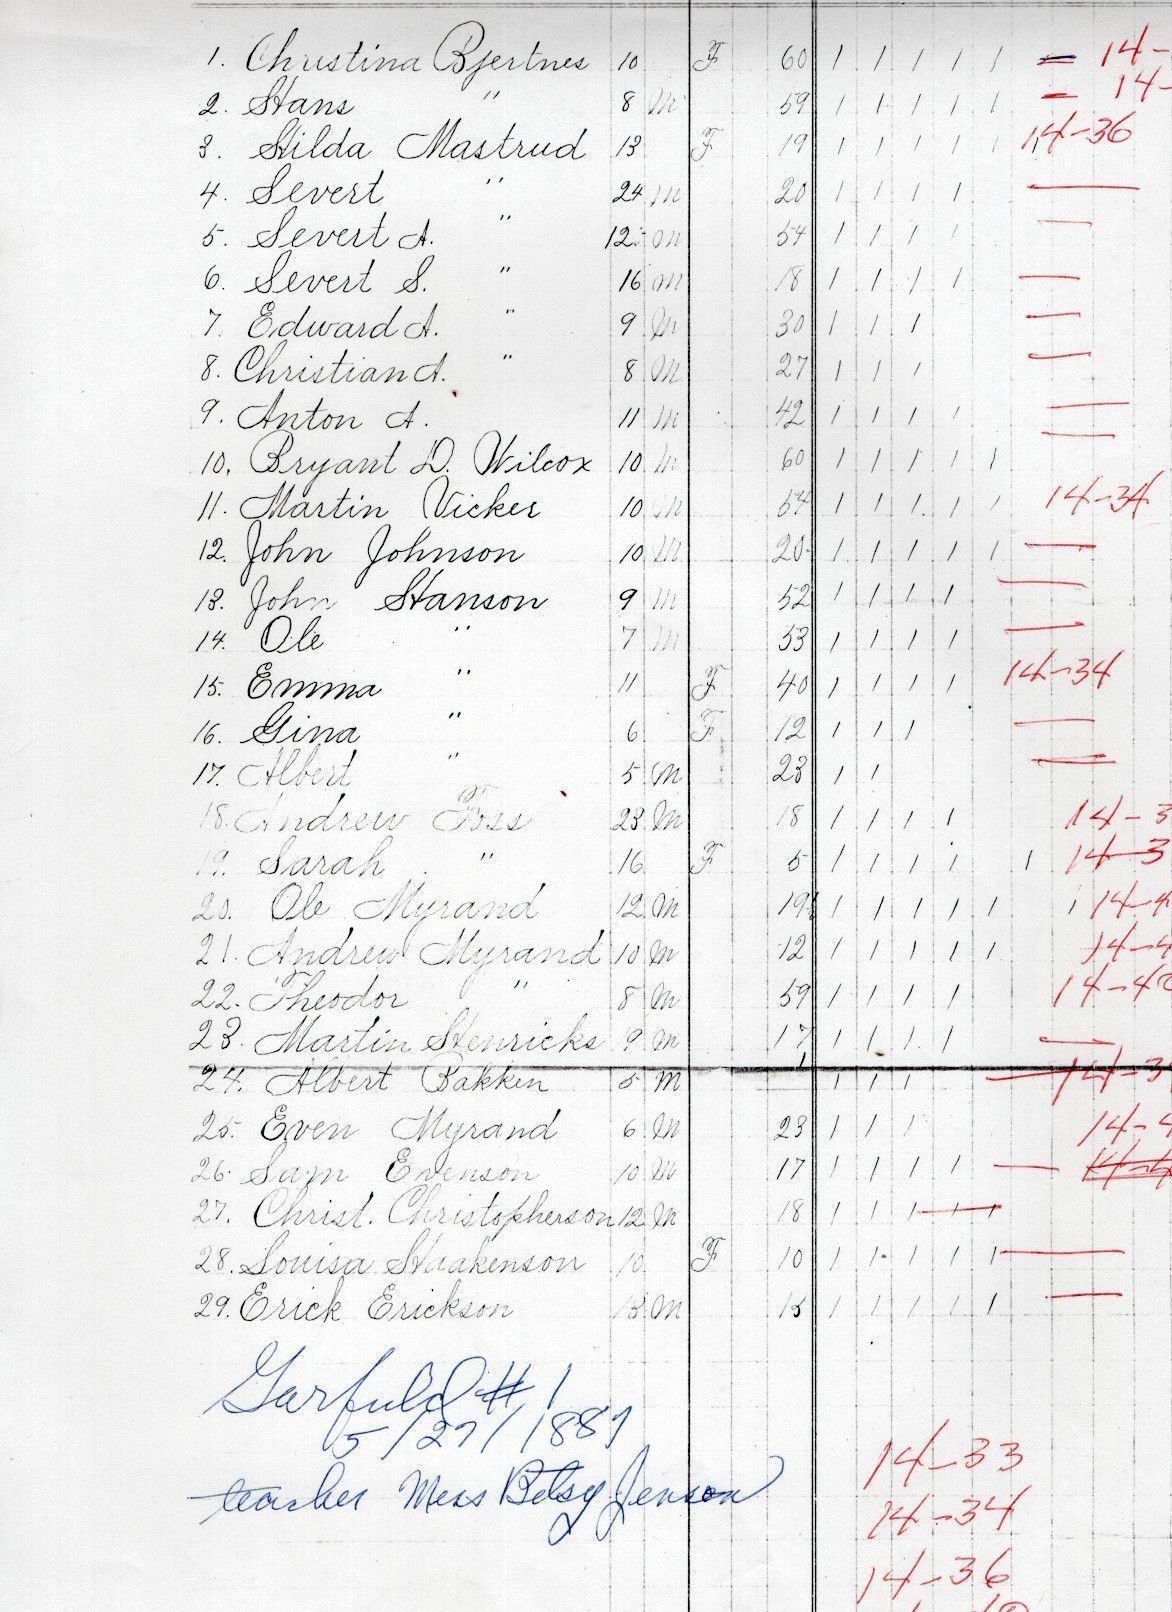 1. Christina Bjertnes 10 F 60 / / / / / = 14-
2. Hans " 8 M 59 / / / / / - 14-
3. Hilda Mastrud 13 F 19 / / / / / / 14-36
4. Severt " 24 M 20 / / / / —
5. Severt A. " 12 M 54 / / / / —
6. Severt S. " 16 M 18 / / / / —
7. Edward A. " 9 M 30 / / / —
8. Christian A. " 8 M 27 / / / —
9. Anton A. 11 M 42 / / / / —
10. Bryant D. Wilcox 10 M 60 / / / / / —
11. Martin Vicker 10 M 54 / / / / / 14-34
12. John Johnson 10 M 20 / / / / / —
13. John Hanson 9 M 52 / / / / —
14. Ole " 7 M 53 / / / / —
15. Emma " 11 F 40 / / / / 14-34
16. Gina " 6 F 12 / / / —
17. Albert " 5 M 23 / / —
18. Andrew Foss 23 M 18 / / / / 14-3
19. Sarah " 16 F 5 / / / / / 14-3
20. Ole Myrand 12 M 19 / / / / / / 14-4
21. Andrew Myrand 10 M 12 / / / / / 14-4
22. Theodor " 8 M 59 / / / / 14-40
23. Martin Henricks 9 M 17 / / / / —
24. Albert Bakken 5 M 1 / / / — 14-3
25. Even Myrand 6 M 23 / / / 14-4
26. Sam Evenson 10 M 17 / / / / — 14-4
27. Christ. Christopherson 12 M 18 / / / / /
28. Louisa Haakenson 10 F 10 / / / / / —
29. Erick Erickson 13 M 15 / / / / / —
Garfield #1
5/27/1887
teacher Miss Betsy Jenson
14-33
14-34
14-36